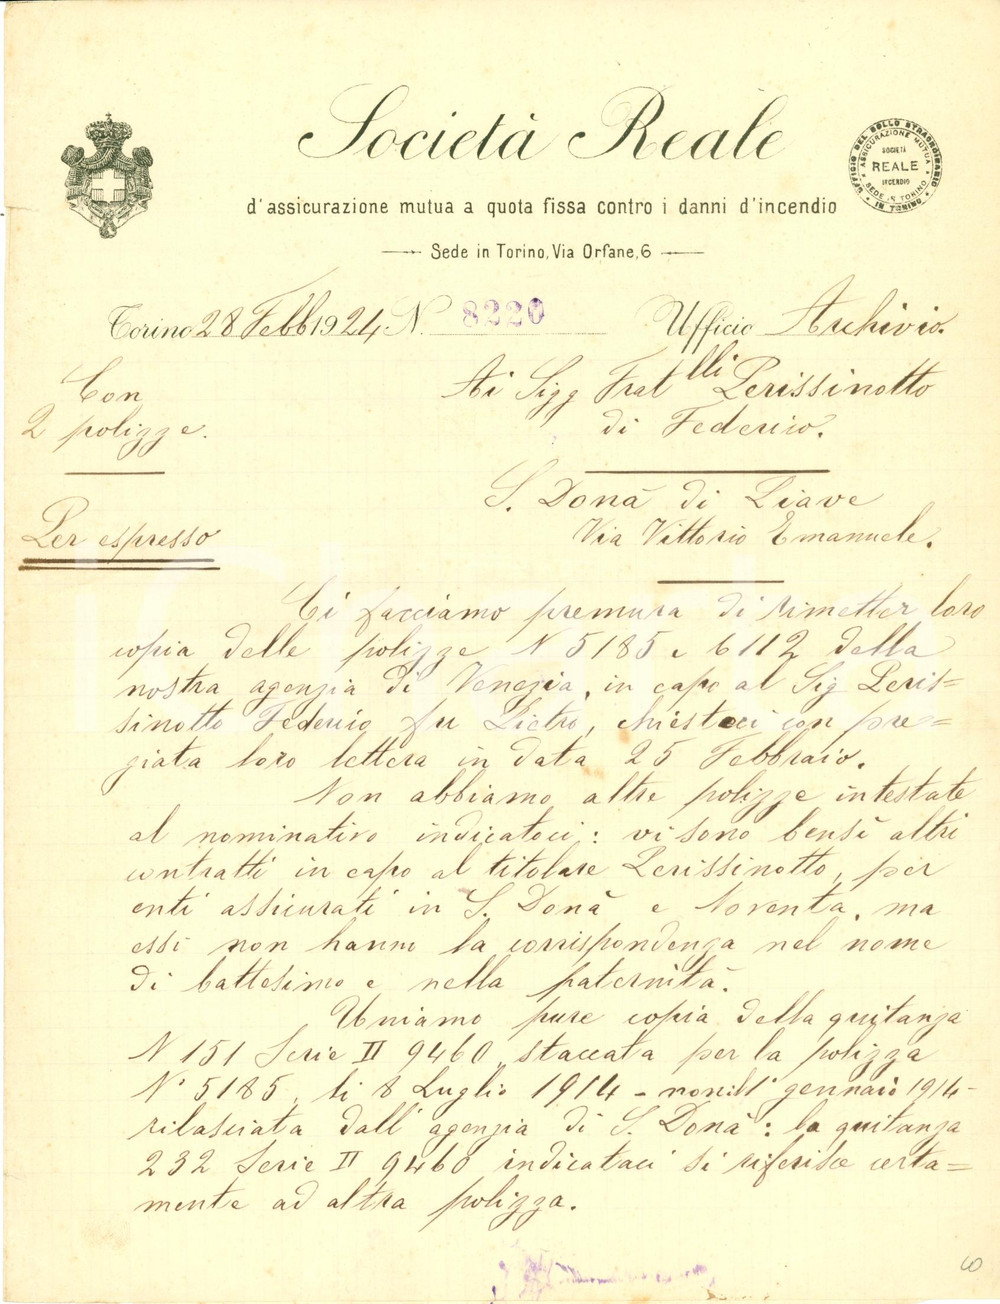 Società Reale
d'assicurazione mutua a quota fissa contro i danni d'incendio
Sede in Torino, Via Orfane, 6
UFFICIO DEL BOLLO STRAORDINARIO
IN TORINO
ASSICURAZIONE MUTUA
SOCIETÀ
REALE
INCENDIO
SEDE IN TORINO
Torino 28 Febb 1924 N. 8220 Ufficio Archivio.
Con
2 polizze.
Per espresso
Ai Sigg Fratelli Perissinotto
di Federico.
S. Donà di Piave
Via Vittorio Emanuele.
Ci facciamo premura di rimetter loro
copia delle polizze N 5185 e 6112 della
nostra agenzia di Venezia, in capo al Sig Peris=
sinotto Federico fu Pietro, chiestaci con pre=
giata loro lettera in data 25 Febbraio.
Non abbiamo altre polizze intestate
al nominativo indicatoci: vi sono bensì altri
contratti in capo al titolare Perissinotto, per
enti assicurati in S. Donà e Noventa, ma
essi non hanno la corrispondenza nel nome
di battesimo e nella paternità.
Uniamo pure copia della quitanza
N 151 Serie II 9460, staccata per la polizza
N° 5185, li 8 Luglio 1914 - non il 1° gennaio 1914 -
rilasciata dall'agenzia di S. Donà: la quitanza
232 Serie II 9460 indicataci si riferisce certa=
mente ad altra polizza.